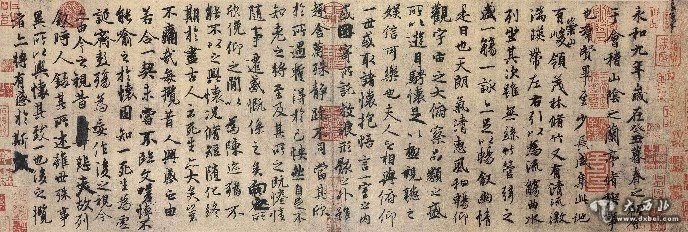 永和九年歲在癸丑暮春之初會
于會稽山陰之蘭亭脩稧事
也群賢畢至少長咸集此地
有崇山峻領茂林脩竹又有清流激
湍暎帶左右引以為流觴曲水
列坐其次雖無絲竹管弦之
盛一觴一詠亦足以暢敘幽情
是日也天朗氣清惠風和暢仰
觀宇宙之大俯察品類之盛
所以遊目騁懷足以極視聽之
娛信可樂也夫人之相與俯仰
一世或取諸懷抱悟言一室之內
或因寄所託放浪形骸之外雖
趣舍萬殊靜躁不同當其欣
於所遇蹔得於己怏然自足不
知老之將至及其所之既惓情
隨事遷感慨係之矣向之所
欣俛仰之閒以為陳迹猶不
能不以之興懷況脩短隨化終
期於盡古人云死生亦大矣豈
不痛哉每攬昔人興感之由
若合一契未嘗不臨文嗟悼不
能喻之於懷固知一死生為虛
誕齊彭殤為妄作後之視今
亦由今之視昔悲夫故列
敘時人錄其所述雖世殊事
異所以興懷其致一也後之攬
者亦將有感於斯文
大西北
www.dxbei.com